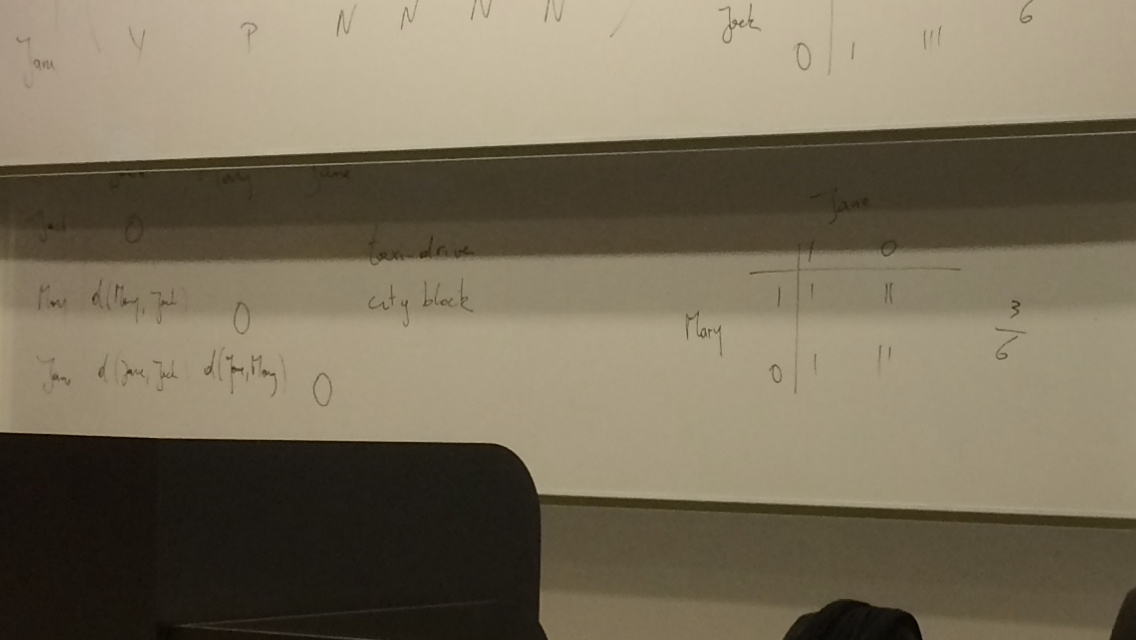 Jane Y P N N N N
Jack 6
0 1 111
Jack Mary Jane
Jack 0
Mary d(Mary, Jack) 0
Jane d(Jane, Jack) d(Jane, Mary) 0
taxi-driver
city block
Jane
1 0
1 1 11
Mary
0 1 11
3
6